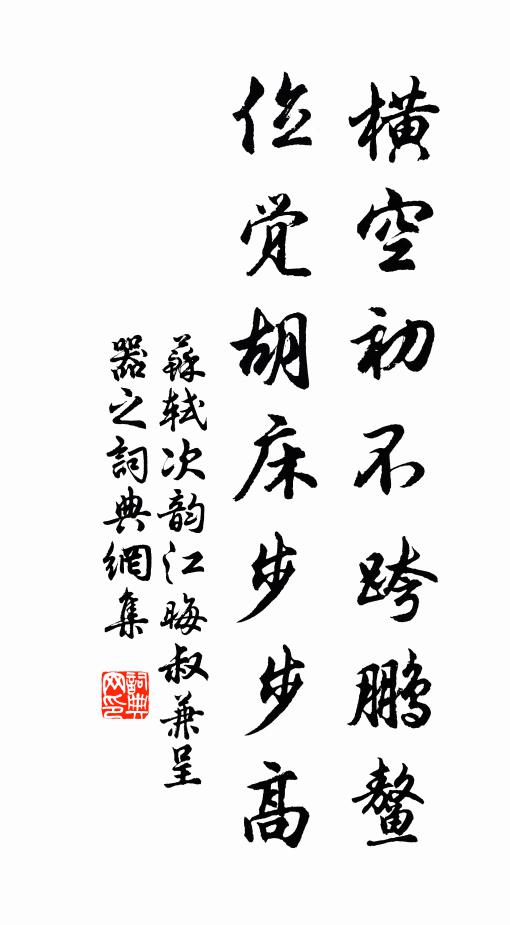 横空初不跨鵬鰲
但覚胡床步步高
蘇軾次韵江晦叔兼呈
器之詞典網集
詞典网印